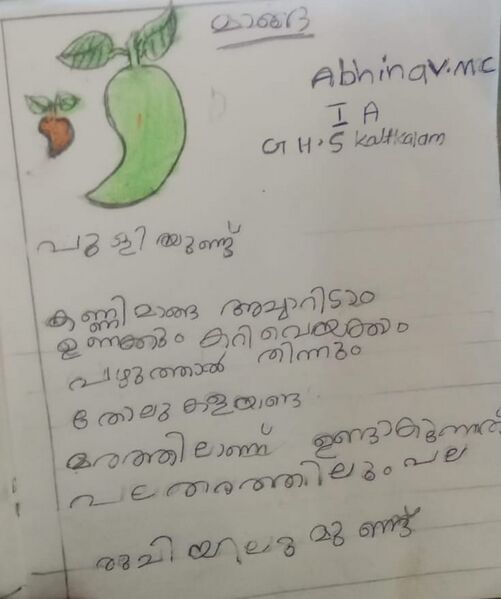 മാങ്ങ
Abhinav.M.C
I A
G H.S Kalikalam
പുളിയുണ്ട്
കണ്ണിമാങ്ങ അച്ചാറിടാം
ഉണക്കും കറിവെയ്ക്കും
പഴുത്താൽ തിന്നും
തോലു കളയണ്ട
മരത്തിലാണ് ഉണ്ടാകുന്നത്
പലതരത്തിലും പല
രുചിയിലുമുണ്ട്